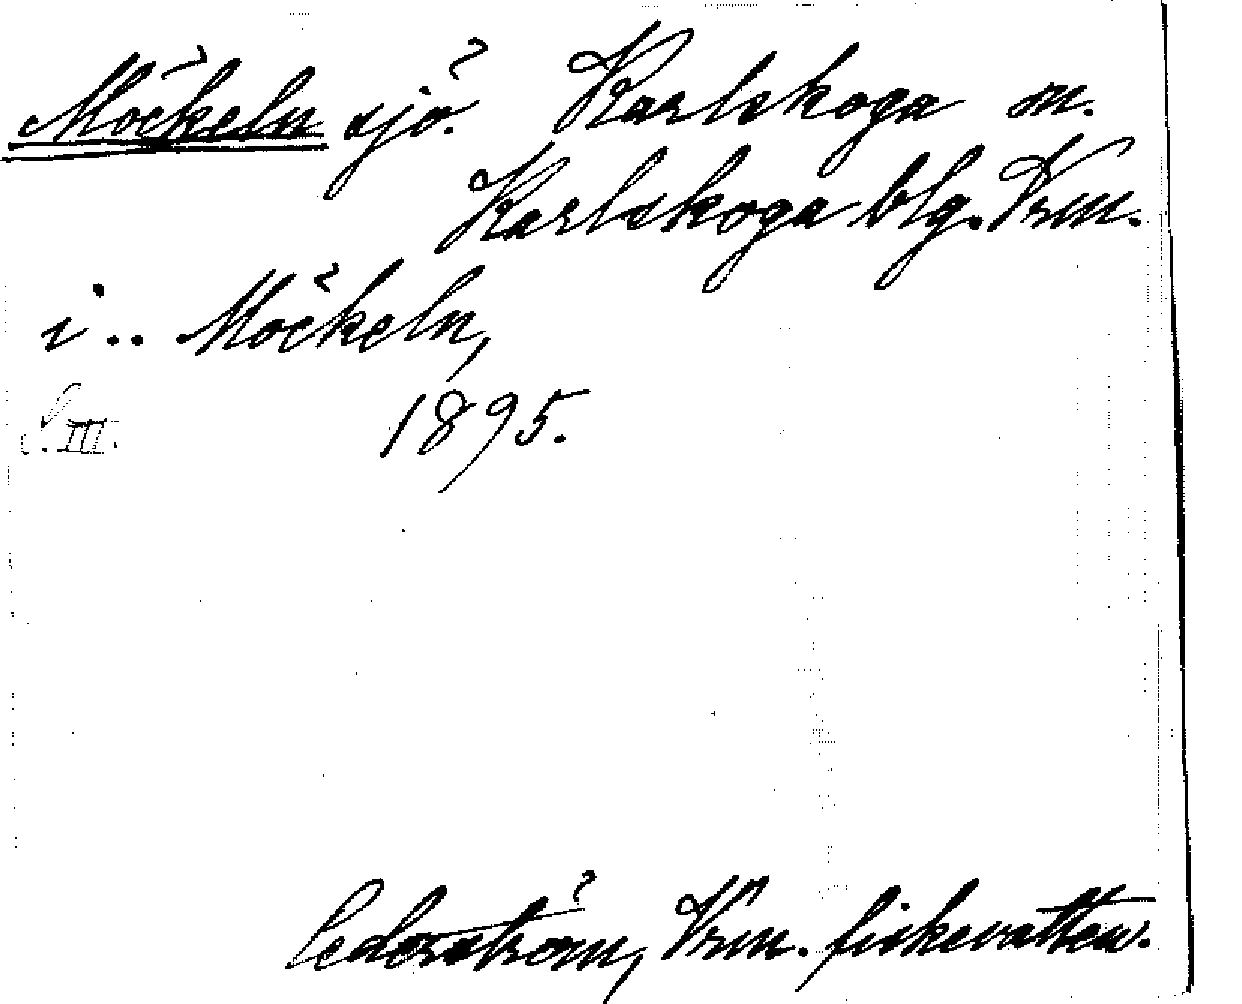 Möckeln sjö. Karlskoga sn.
Karlskoga blg. Vrm.
i .. Möckeln,
1895.
S. III.
Cederström, Vrm. fiskevatten.